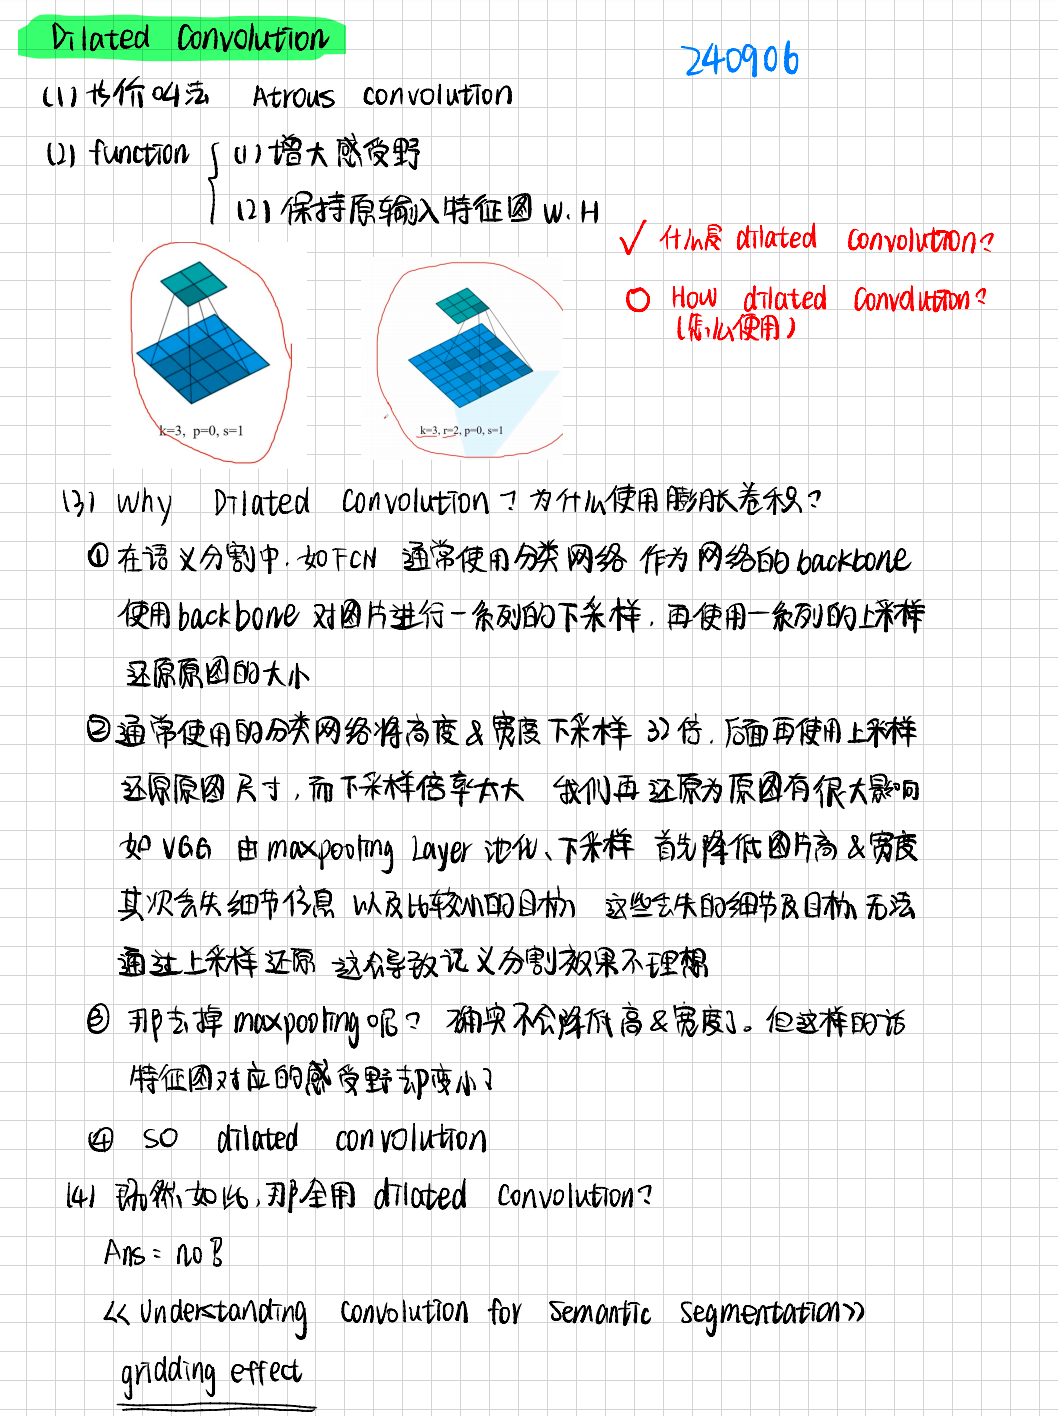 Dilated Convolution
240906
(1) 也价叫法 Atrous convolution
(2) function { (1) 增大感受野
(2) 保持原输入特征图 W.H
✓ 什么是 dilated convolution?
○ How dilated convolution?
(怎么使用)
k=3, p=0, s=1
k=3, r=2, p=0, s=1
(3) Why Dilated Convolution? 为什么使用膨胀卷积?
① 在语义分割中.如FCN 通常使用分类网络 作为网络的backbone
使用backbone 对图片进行一系列的下采样.再使用一系列的上采样
还原原图的大小
② 通常使用的分类网络将高度&宽度下采样 32倍.后面再使用上采样
还原原图尺寸,而下采样倍率太大 我们再还原为原图有很大影响
如 VGG 由 maxpooling Layer 池化、下采样 首先降低图片高&宽度
其次丢失细节信息 以及比较小的目标 这些丢失的细节及目标无法
通过上采样还原 这会导致语义分割效果不理想
③ 那去掉 maxpooling 呢? 确实不会降低高&宽度了。但这样的话
特征图对应的感受野却变小了
④ SO dilated convolution
(4) 既然如此,那全用 dilated convolution?
Ans = no!
<< Understanding Convolution for Semantic Segmentation>>
gridding effect